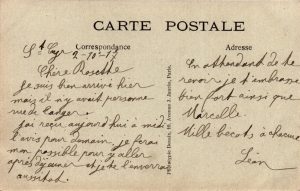 CARTE POSTALE
Correspondance
Adresse
St Cyr 2-10-17
Chère Rosette
Je suis bien arrivé hier
mais il n'y avait personne
rue de
j'ai reçu aujourd'hui à midi
l'avis pour demain, je ferai
mon possible pour y aller
après déjeuner et je te l'enverrai
aussitôt.
Phototypie Baudinière, Paris.
En attendant de te
revoir je t'embrasse
bien fort ainsi que
Marcelle
Mille becots à chacune
Léon